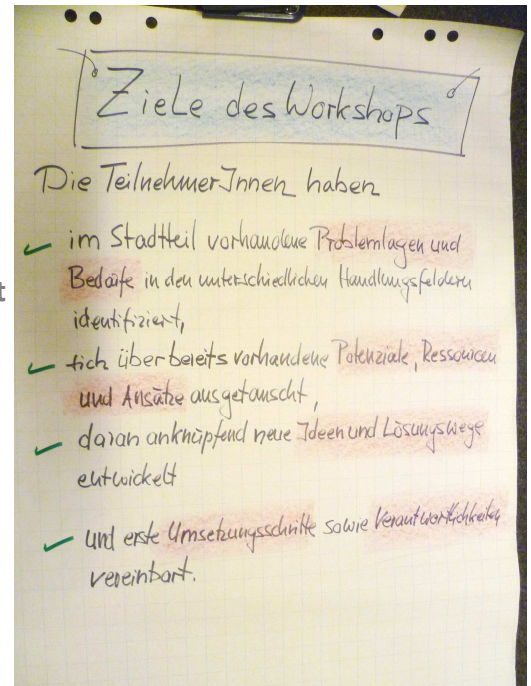 Ziele des Workshops
Die TeilnehmerInnen haben
im Stadtteil vorhandene Problemlagen und
Bedarfe in den unterschiedlichen Handlungsfeldern
t
identifiziert,
sich über bereits vorhandene Potenziale, Ressourcen
und Ansätze ausgetauscht,
daran anknüpfend neue Ideen und Lösungswege
entwickelt
und erste Umsetzungsschritte sowie Verantwortlichkeiten
vereinbart.